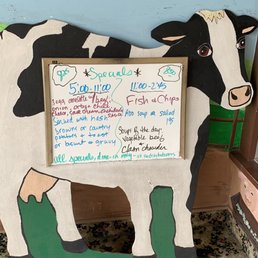 Specials
5:00-11:00
3 egg omelette w/ bay
onion, ortega chili
cheese, sour cream
salsa
Served with hash
browns or country
potatoes & toast
or biscuit & gravy
11:00-2:45
Fish & Chips
Also soup or salad
Soup of the day
vegetable beef
clam chowder
all specials, dine-in only - no substitutions